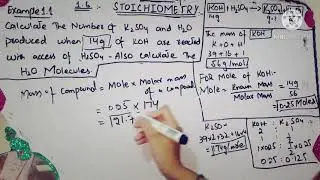 Example 1.1
1.6. STOICHIOMETRY
Calculate The Number of K₂SO₄ and H₂O
produced when 14g of KOH are reacted
with access of H₂SO₄. Also calculate The
H₂O Molecules.
Mass of Compound = Mole × Molar mass
of a compound
= 0.125 × 174
= 21.7
KOH + H₂SO₄ →
14g
The mass of KOH
K + O + H
39 + 16 + 1
56 g/mol
For Mole of KOH:-
Mole = Known Mass = 14g
Molar Mass 56
= 0.25 Moles
K₂SO₄
174 g/mol
KOH : K₂SO₄
2 : 1
0.25 : 0.125